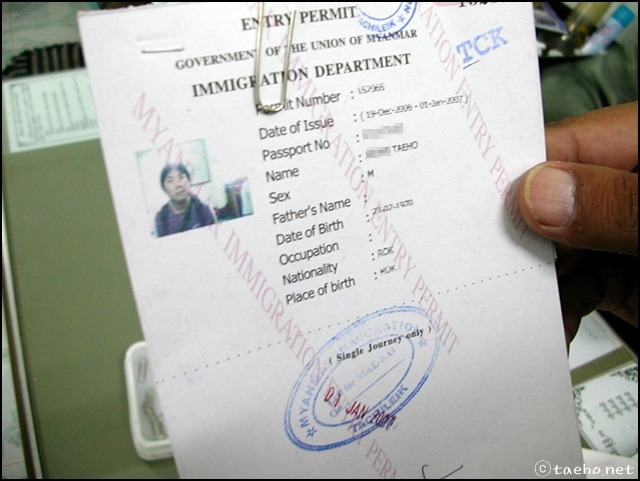 ENTRY PERMIT
GOVERNMENT OF THE UNION OF MYANMAR
IMMIGRATION DEPARTMENT
TCK
Permit Number :
Date of Issue : ( 19-Dec-2006 - 01-Jan-2007 )
Passport No :
Name : TAEHO
Sex : M
Father's Name :
Date of Birth : -02-1970
Occupation :
Nationality : ROK
Place of birth : ROK
( Single Journey only )
MYANMAR IMMIGRATION
MAE-SAI
01 JAN 2007
TACHILEIK
MYANMAR IMMIGRATION ENTRY PERMIT
©taeho.net